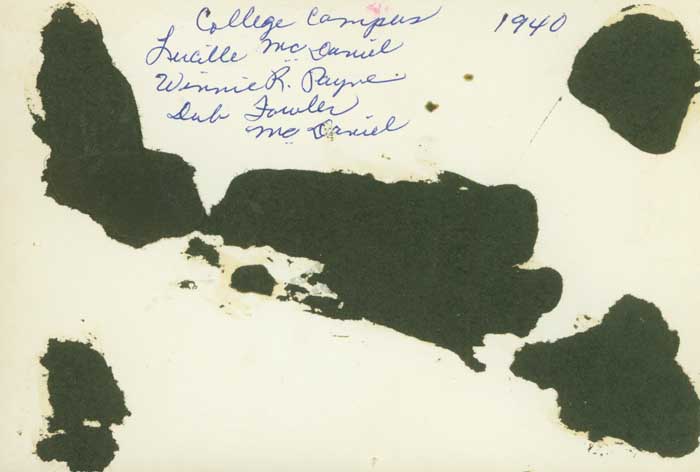 College Campus 1940
Lucille McDaniel
Winnie R. Payne
Dub Fowler
McDaniel